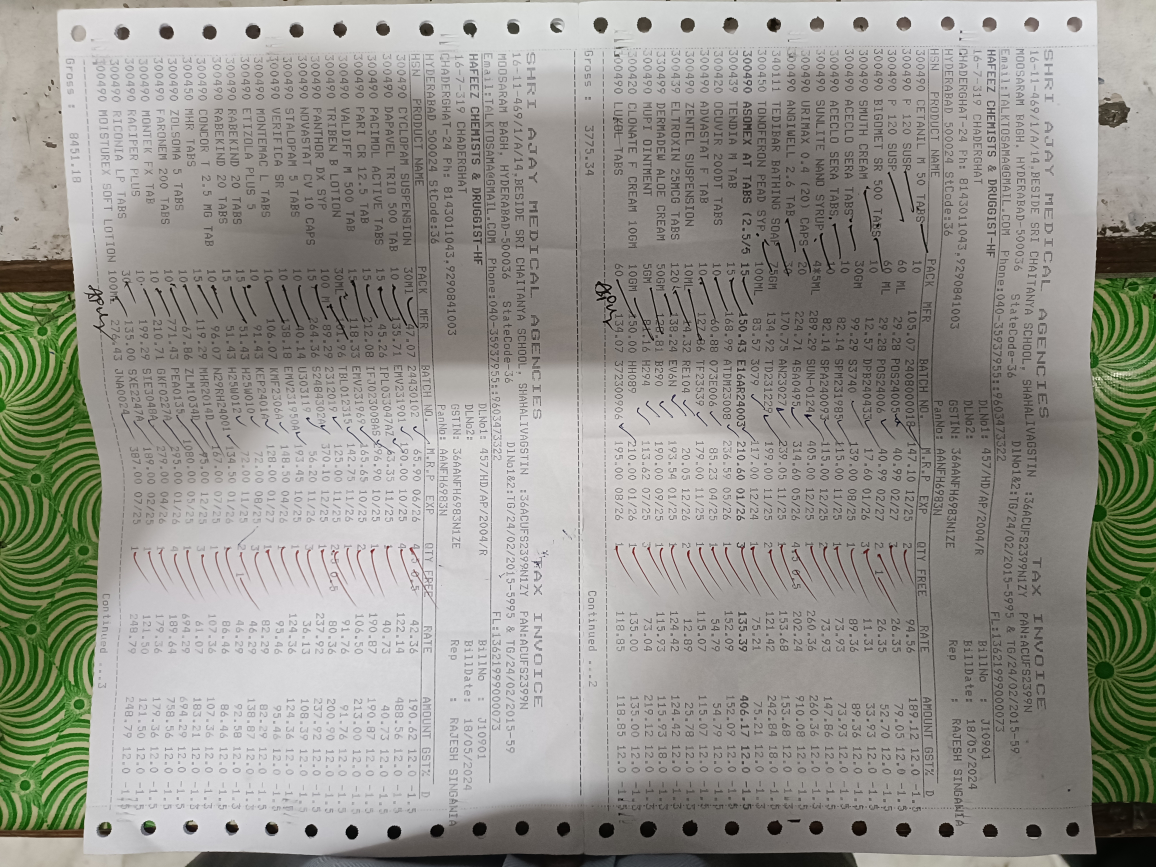 SHRI AJAY MEDICAL AGENCIES TAX INVOICE
16-11-469/1/A/14,BESIDE SRI CHAITANYA SCHOOL, SHAHALIVAGSTIN :36ACUFS2399N1ZY PAN:ACUFS2399N
MOOSARAM BAGH, HYDERABAD-500036 StateCode-36 DlNo1&2:TG/24/02/2015-5995 & TG/24/02/2015-59
Email:TALKTOSAMA@GMAIL.COM Phone:040-35937955::9603473322 FL:13621999000073
HAFEEZ CHEMISTS & DRUGGIST-HF DLNo1: 457/HD/AP/2004/R BillNo : J10901
16-7-319 CHADERGHAT DLNo2: BillDate: 18/05/2024
CHADERGHAT-24 Ph: 8143011043,9290841003 GSTIN: 36AANFH6983N1ZE Rep : RAJESH SINGAWIA
HYDERABAD 500024 StCode:36 PanNo: AANFH6983N
HSN PRODUCT NAME PACK MFR BATCH NO. M.R.P EXP QTY FREE RATE AMOUNT GST% D
300490 CETANIL M 50 TABS 10 105.07 147.10 12/25 2 94.56 189.12 12.0 -1.5
300490 P 120 SUSP 60 ML 29.28 PDS24005 40.99 02/27 3 26.35 79.05 12.0 -1.5
300490 P 120 SUSP 60 ML 29.28 PDS24006 40.99 02/27 2 1 26.35 52.70 12.0 -1.5
300490 BIGOMET SR 500 TABS 10 12.57 DPB20433 17.60 01/26 3 11.31 33.93 12.0 -1.5
300490 SMUTH CREAM 30GM 99.29 S3740 139.00 08/25 1 89.36 89.36 12.0 -1.5
300490 ACECLO SERA TABS 10 82.14 SPM231985 115.00 11/25 1 73.93 73.93 12.0 -1.5
300490 ACECLO SERA TABS 10 82.14 SPA240093 115.00 12/25 2 73.93 147.86 12.0 -1.5
300490 SUNLITE NANO SYRUP 4*5ML 289.29 SUN-0124 405.00 1 260.36 260.36 12.0
300490 URIMAX 0.4 (20) CAPS 20 224.71 4SA0495 314.60 05/26 4.5 0.5 202.24 910.08 12.0 -1.5
300490 ANGIWELL 2.6 TAB 30 170.75 AN23027 239.05 11/25 1 153.68 153.68 12.0 -1.5
34011 TEDIBAR BATHING SOAP 75GM 134.92 TD231229 199.00 11/25 2 121.42 242.84 18.0 -1.5
300450 TONOFERON PEAD SYP 100ML 83.57 3079 117.00 12/24 1 75.21 75.21 12.0
300490 ASOMEX AT TABS (2.5/5 15 150.43 E1GAR24003 210.60 01/26 3 135.39 406.17 12.0 -1.5
300439 TENDIA M TAB 15 168.99 ATDM23008 236.59 05/26 1 152.09 152.09 12.0 -1.5
300420 OCUVIR 200DT TABS 10 60.88 073E006 85.23 04/25 1 54.79 54.79 12.0 -1.5
300490 ADVASTAT F TAB 10 127.86 AFT23539 179.00 1 115.07 115.07 12.0 -1.5
300490 ZENTEL SUSPENSION 10ML RE104 2 12.89 25.78 12.0 -1.5
300439 ELTROXIN 25MCG TABS 120 138.24 EV6N 193.54 01/26 1 124.42 124.42 12.0
330499 DERMADEW ALOE CREAM 50GM 190.00 09/25 1 115.93 115.93 18.0 -1.5
300490 MUPI OINTMENT 5GM B294 113.62 07/25 3 73.04 219.12 12.0 -1.5
300420 CLONATE F CREAM 10GM 10GM 150.00 HH089 210.00 01/26 1 135.00 135.00 12.0 -1.5
300490 LUKOL TABS 60 134.07 372300906 195.00 08/26 1 118.85 118.85 12.0 -1.5
Gross : 3775.34 Continued ...2
SHRI AJAY MEDICAL AGENCIES TAX INVOICE
16-11-469/1/A/14,BESIDE SRI CHAITANYA SCHOOL, SHAHALIVAGSTIN :36ACUFS2399N1ZY PAN:ACUFS2399N
MOOSARAM BAGH, HYDERABAD-500036 StateCode-36 DlNo1&2:TG/24/02/2015-5995 & TG/24/02/2015-59
Email:TALKTOSAMA@GMAIL.COM Phone:040-35937955::9603473322 FL:13621999000073
HAFEEZ CHEMISTS & DRUGGIST-HF DLNo1: 457/HD/AP/2004/R BillNo : J10901
16-7-319 CHADERGHAT DLNo2: BillDate: 18/05/2024
CHADERGHAT-24 Ph: 8143011043,9290841003 GSTIN: 36AANFH6983N1ZE Rep : RAJESH SINGAWIA
HYDERABAD 500024 StCode:36 PanNo: AANFH6983N
HSN PRODUCT NAME PACK MFR BATCH NO. M.R.P EXP QTY FREE RATE AMOUNT GST% D
300490 CYCLOPAM SUSPENSION 30ML 47.07 65.90 04/26 4.5 0.5 42.36 190.62 12.0 -1.5
300490 DAPAVEL TRIO 500 TAB 10 135.71 EMV231901 190.00 10/25 4 122.14 488.56 12.0 -1.5
300490 PACIMOL ACTIVE TABS 15 45.26 11/25 1 40.73 40.73 12.0 -1.5
300490 PARI CR 12.5 TAB 15 212.08 10/25 1 190.87 190.87 12.0 -1.5
300490 VALDIFF M 500 TAB 15 118.33 EMV231 2 106.50 213.00 12.0 -1.5
300490 TRIBEN B LOTION 30ML TBL012315 12/25 1 91.76 91.76 12.0 -1.5
300490 PANTHOR DX SYP 100 M 231201 125.00 11/25 2.5 0.5 80.36 200.90 12.0 -1.5
300490 NOVASTAT CV 10 CAPS 15 264.36 370.10 12/25 1 237.92 237.92 12.0 -1.5
300490 STALOPAM 5 TABS 10 40.14 U303119 56.20 11/26 3 36.13 108.39 12.0 -1.5
300490 VERIFICA SR 15 138.18 193.45 10/25 1 124.36 124.36 12.0
300490 MONTEMAC L TABS 10 106.07 148.50 04/26 1 95.46 95.46 12.0 -1.5
300490 ETIZOLA PLUS 5 10 91.43 KEP24017 128.00 01/27 1 82.29 82.29 12.0 -1.5
300490 RABEKIND 20 TABS 15 51.43 H25W010 72.00 08/25 3 46.29 138.87 12.0 -1.5
300490 RABEKIND 20 TABS 15 51.43 H25W012 72.00 11/25 2 1 46.29
300490 CONCOR T 2.5 MG TAB 10 96.07 N29RH24001 134.50 01/26 1 86.46 86.46 12.0 -1.5
300450 MHR TABS 15 119.29 MHR2014 167.00 07/25 1 107.36 107.36 12.0 -1.5
300490 ZOLSOMA 5 TABS 10 67.86 ZLM1034 95.00 12/25 3 61.07 183.21 12.0
300420 FARONEM 200 TABS 10 771.43 PEA0135 1080.00 05/25 1 694.29 694.29 12.0 -1.5
300490 MONTEK FX TAB 10 210.71 295.00 01/26 4 189.64 758.56 12.0 -1.5
300490 RACIPER PLUS 10 199.29 SIE3048A 279.00 04/26 1 179.36 179.36 12.0 -1.5
300490 RICONIA LP TABS 30 135.00 SXE2247A 189.00 02/25 1 121.50 121.50 12.0 -1.5
300490 MOISTUREX SOFT LOTION 100ML 276.43 JNA002A 387.00 07/25 1 248.79 248.79 12.0 -1.5
Gross : 8451.18 Continued ...3